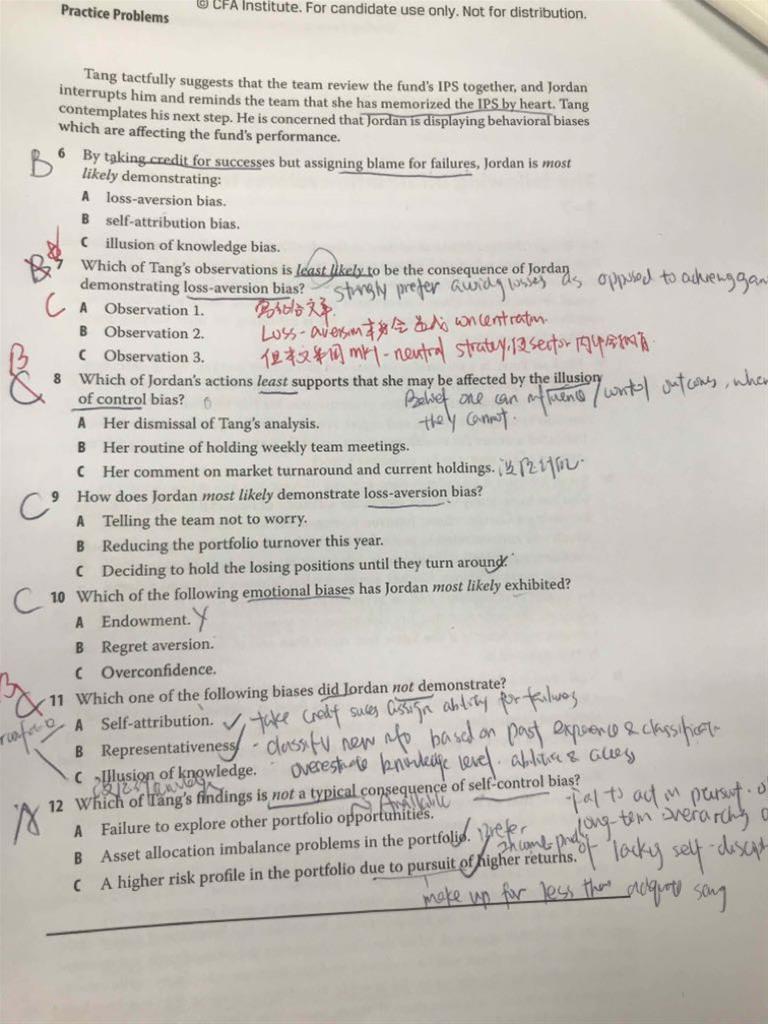 Practice Problems
© CFA Institute. For candidate use only. Not for distribution.
Tang tactfully suggests that the team review the fund's IPS together, and Jordan
interrupts him and reminds the team that she has memorized the IPS by heart. Tang
contemplates his next step. He is concerned that Jordan is displaying behavioral biases
which are affecting the fund's performance.
B
6 By taking credit for successes but assigning blame for failures, Jordan is most
likely demonstrating:
A loss-aversion bias.
B self-attribution bias.
C illusion of knowledge bias.
7 Which of Tang's observations is least likely to be the consequence of Jordan
demonstrating loss-aversion bias?
strongly prefer avoiding losses as opposed to achieving gan
C
A Observation 1.
B Observation 2.
Loss-aversion
C Observation 3.
mkt-neutral strategy, sector
B
8 Which of Jordan's actions least supports that she may be affected by the illusion
of control bias?
Belief one can influence/control outcomes, when
they cannot.
A Her dismissal of Tang's analysis.
B Her routine of holding weekly team meetings.
C Her comment on market turnaround and current holdings.
C
9 How does Jordan most likely demonstrate loss-aversion bias?
A Telling the team not to worry.
B Reducing the portfolio turnover this year.
C Deciding to hold the losing positions until they turn around.
C
10 Which of the following emotional biases has Jordan most likely exhibited?
A Endowment.
B Regret aversion.
C Overconfidence.
B
11 Which one of the following biases did Jordan not demonstrate?
A Self-attribution.
take credit assign for failures
B Representativeness
classify new info based on past experience & classificat
C Illusion of knowledge.
overestimate knowledge level. abilities & access
A
12 Which of Tang's findings is not a typical consequence of self-control bias?
A Failure to explore other portfolio opportunities.
Available
fail to act in pursuit of
long-term overarching
B Asset allocation imbalance problems in the portfolio.
prefer
of lacking self-discipl
C A higher risk profile in the portfolio due to pursuit of higher returns.
make up for less than adequate